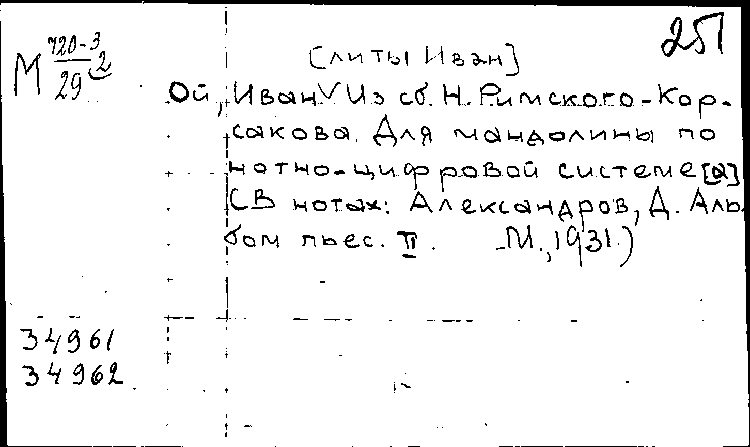 251
М 720-3
29 2
[литы Иван]
Ой, Иван. Из сб. Н. Римского-Кор-
сакова. Для мандолины по
нотно-цифровой системе [а]
(В нотах: Александров, Д. Аль-
бом пьес. II. М., 1931.)
34961
34962